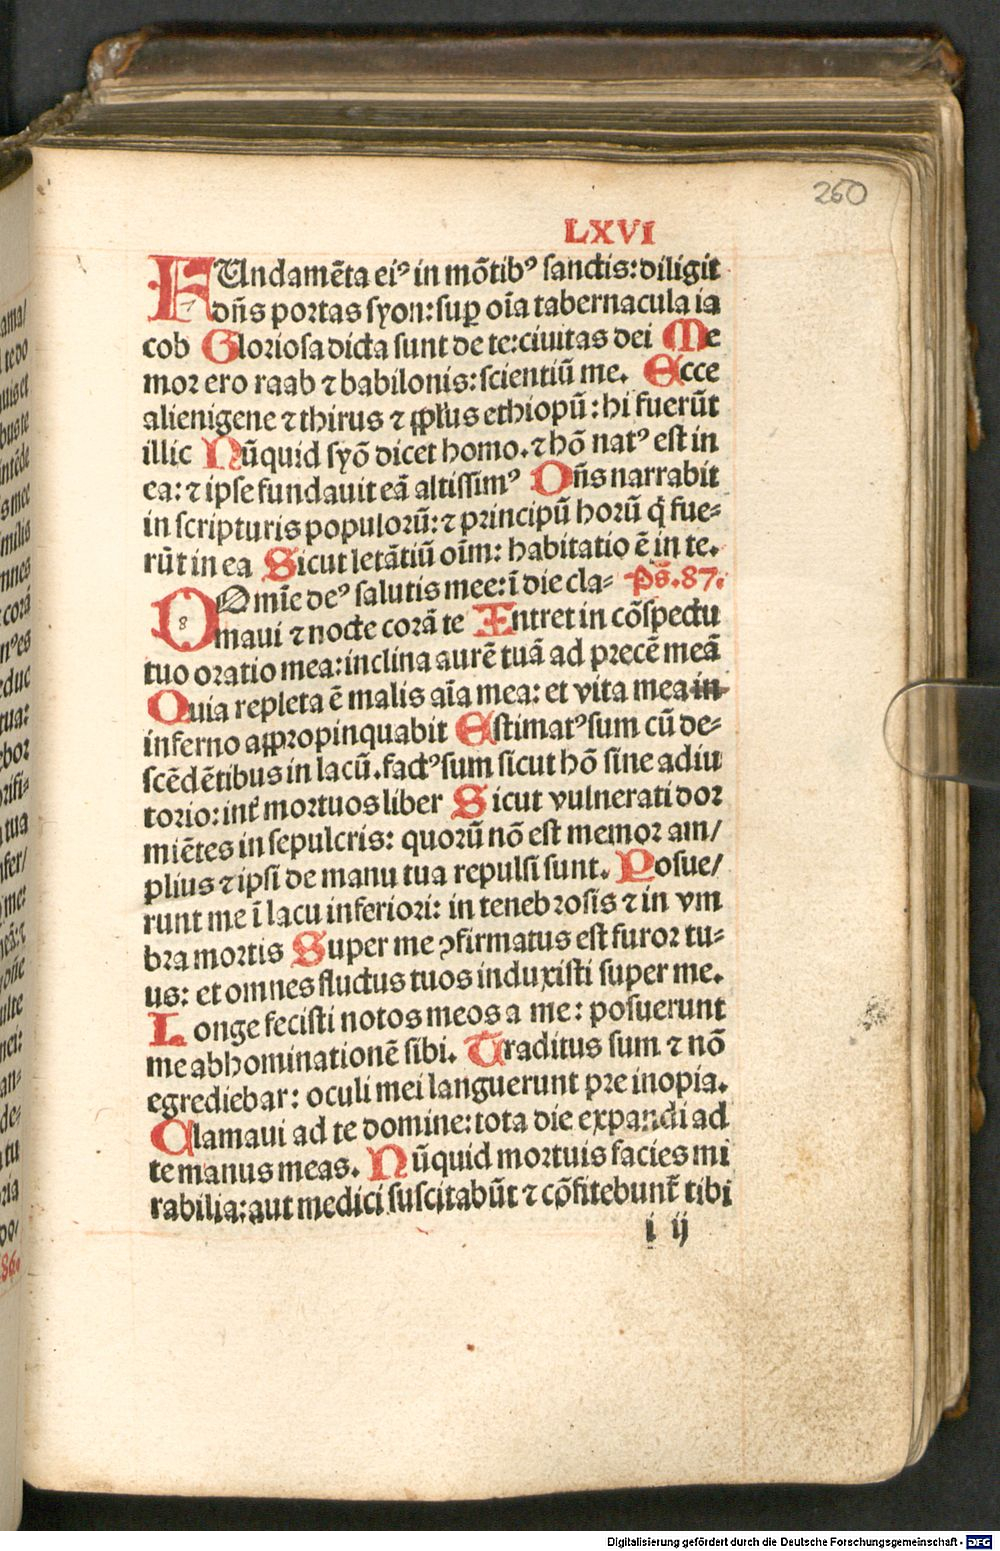 260
LXVI
FUndamēta eiꝰ in mōtibꝰ sanctis: diligit
dñs portas syon: suꝑ oīa tabernacula ia
cob Gloriosa dicta sunt de te: ciuitas dei Me
mor ero raab ⁊ babilonis: scientiū me. Ecce
alienigene ⁊ thirus ⁊ ppl̓us ethiopū: hi fuerūt
illic Nūquid syō dicet homo. ⁊ hō natꝰ est in
ea: ⁊ ipse fundauit eā altissimꝰ Dñs narrabit
in scripturis populorū: ⁊ principū horū q̄ fue⸗
rūt in ea Sicut letātiū oīm: habitatio ē in te.
DOmīe deꝰ salutis mee: ī die cla⸗ Ps̄. 87.
8
maui ⁊ nocte corā te Entret in cōspectu
tuo oratio mea: inclina aurē tuā ad precē meā
Quia repleta ē malis aīa mea: et vita mea in⸗
inferno appropinquabit Estimatꝰ sum cū de⸗
scēdētibus in lacū. factꝰ sum sicut hō sine adiu
torio: int̓ mortuos liber Sicut vulnerati dor
miētes in sepulcris: quorū nō est memor am/
plius ⁊ ipsi de manu tua repulsi sunt. Posue/
runt me ī lacu inferiori: in tenebrosis ⁊ in vm
bra mortis Super me ꝯfirmatus est furor tu⸗
us: et omnes fluctus tuos induxisti super me.
Longe fecisti notos meos a me: posuerunt
me abhominationē sibi. Traditus sum ⁊ nō
egrediebar: oculi mei languerunt pre inopia.
Clamaui ad te domine: tota die expandi ad
te manus meas. Nūquid mortuis facies mi
rabilia: aut medici suscitabūt ⁊ cōfitebunt̄ tibi
i ij
Digitalisierung gefördert durch die Deutsche Forschungsgemeinschaft - DFG